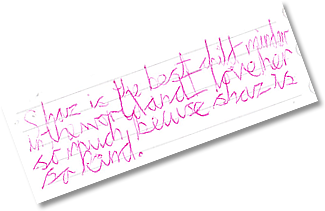 Shaz is the best child minder
in the world and I love her
so much, because shaz is
so kind.